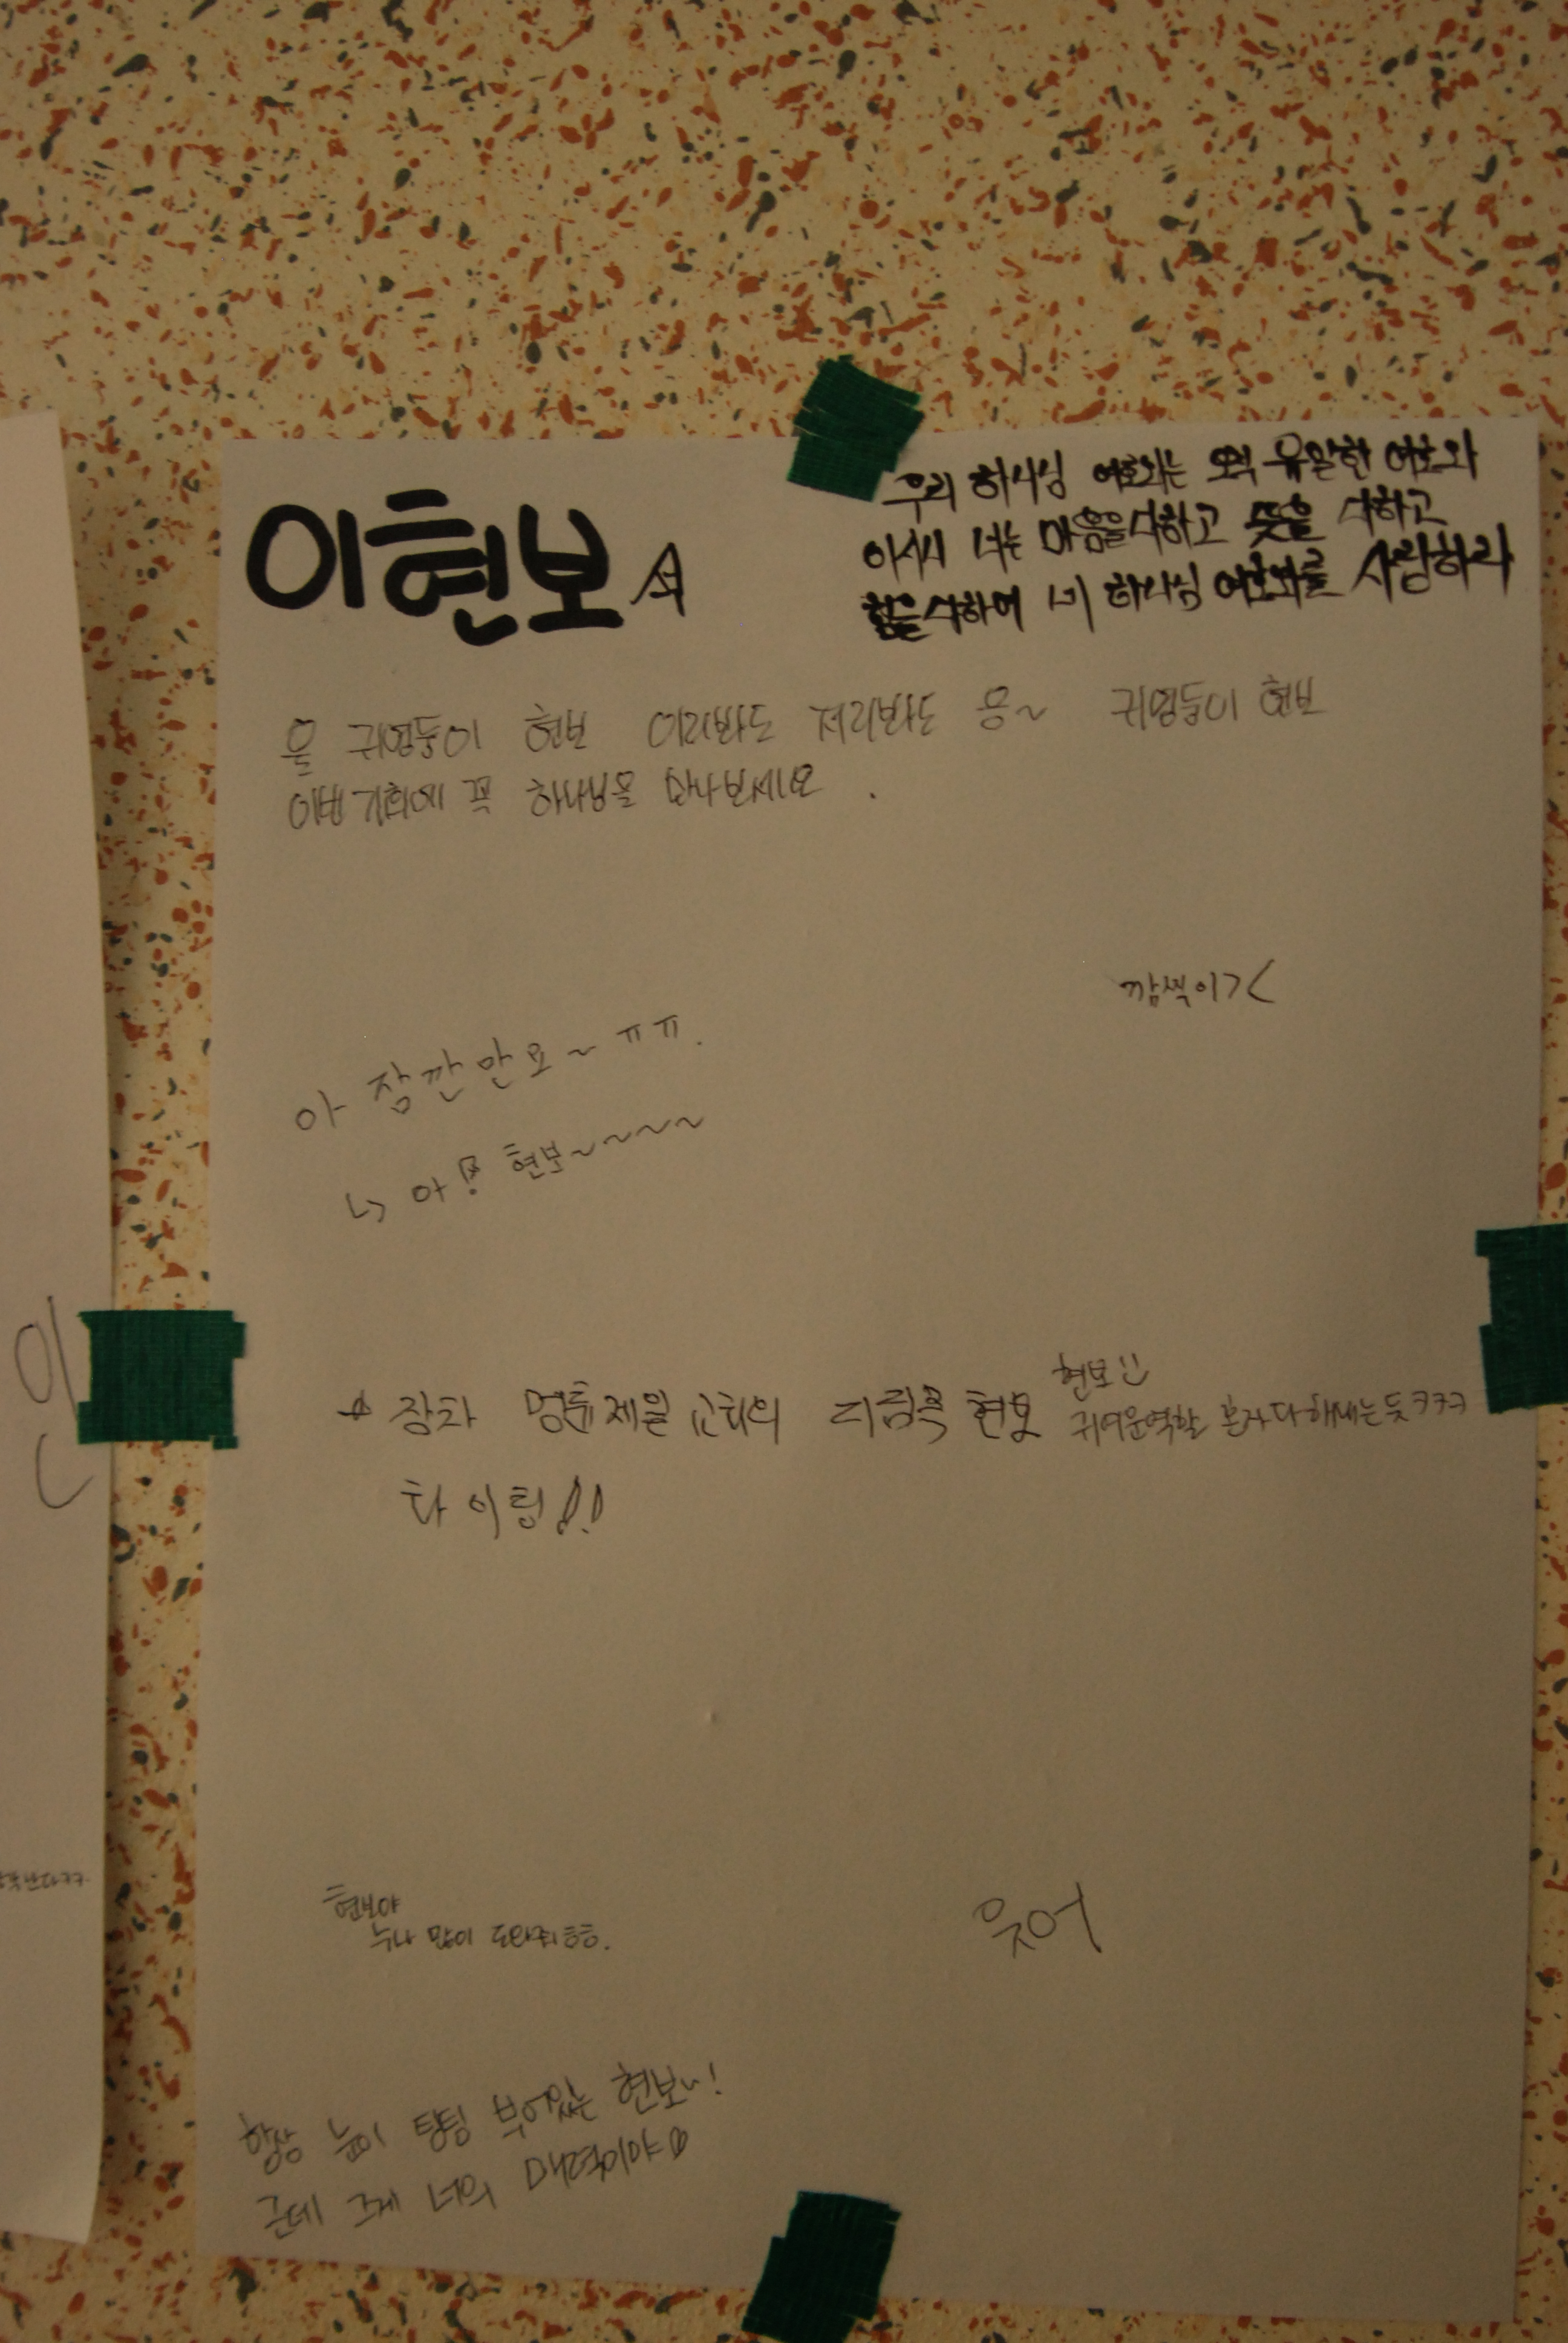 이현보
우리 하나님 여호와는 오직 유일한 여호와
이시니 너는 마음을 다하고 뜻을 다하고
힘을 다하여 네 하나님 여호와를 사랑하라
울 귀염둥이 현보 이리봐도 저리봐도 응~ 귀염둥이 현보
이번 기회에 꼭 하나님을 만나보세요.
깜찍이><
아 잠깐만요~ㅠㅠ.
↳ 아! 현보~~~~~
장차 명륜제일교회의 현보
화이팅!!
현보!!
귀여운역할 혼자다해내는듯ㅋㅋㅋ
현보야
누나 많이 도와줘ㅎㅎ.
웃어
항상 눈이 탱탱 부어있는 현보~!
근데 그게 너의 매력이야
인